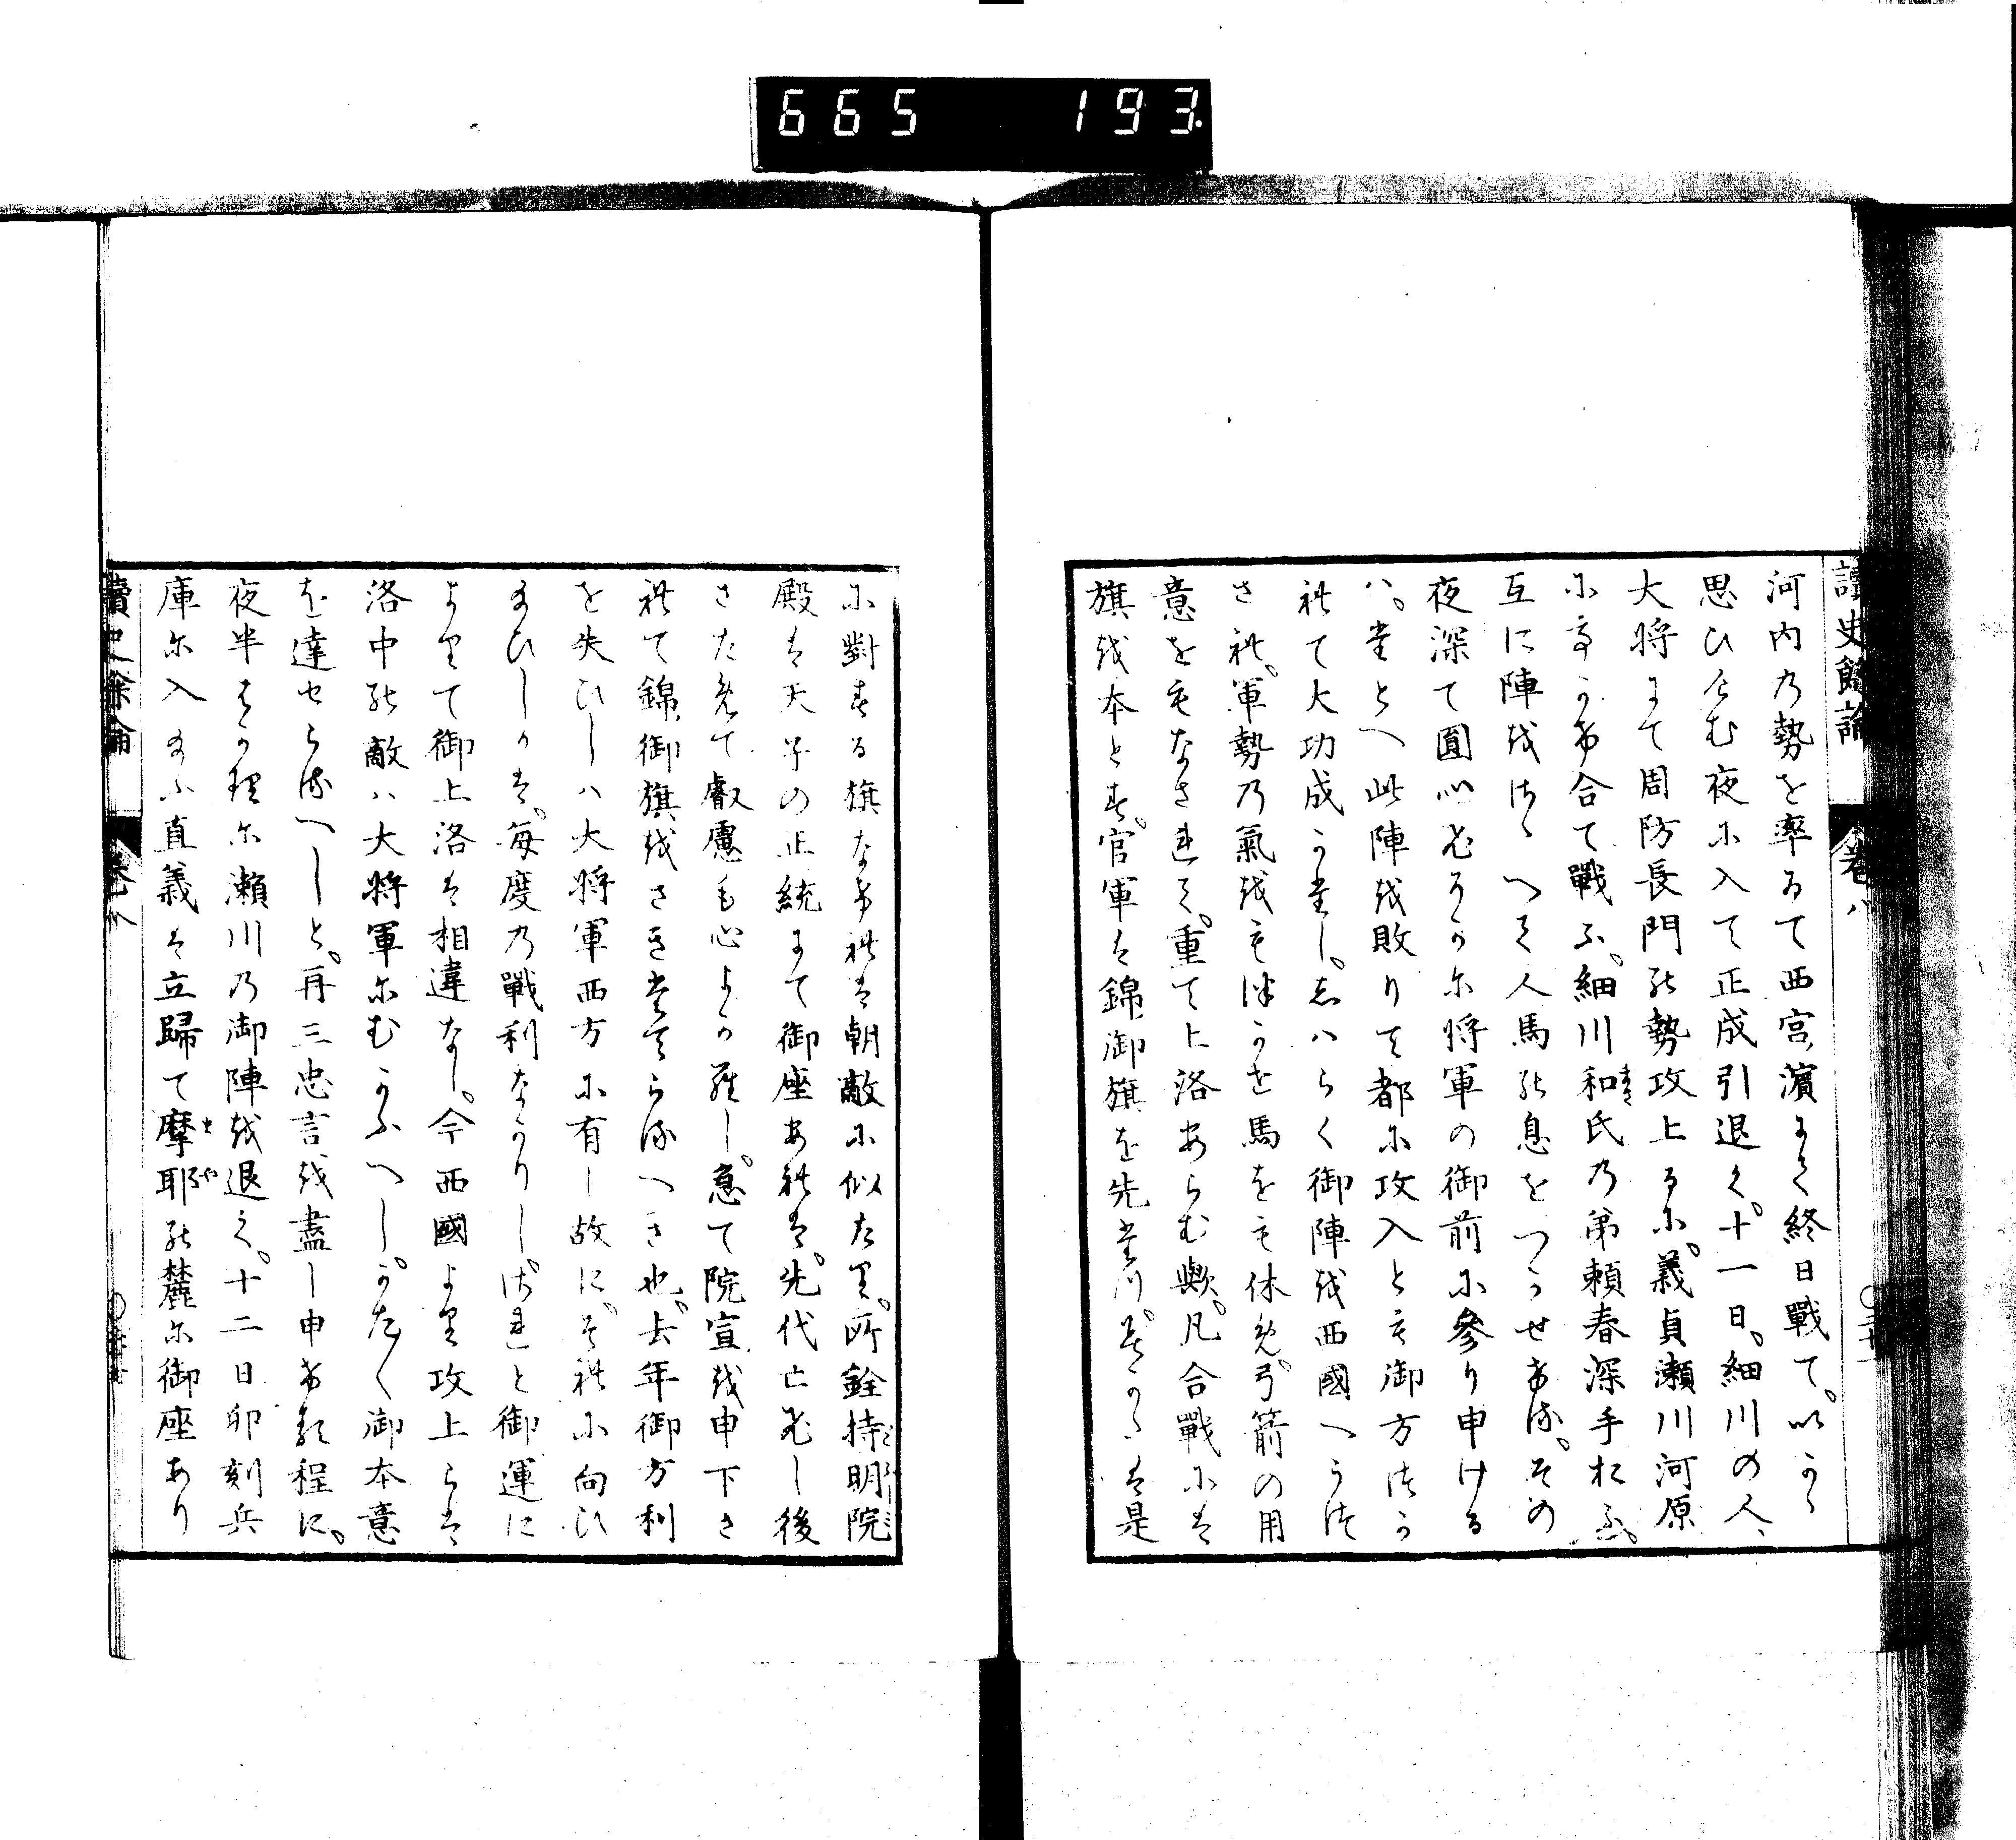 665 193
讀史餘論 卷八
河内の勢を率ゐて西宮濱にて終日戰て。いかゝ
思ひけむ夜に入て正成引退く。十一日。細川の人々
大將にて周防長門の勢攻上るに。義貞瀬川河原
に事かけ合て戰ふ。細川和氏の弟頼春深手おふ。
互に陣をはりへて人馬の息をつかせける。その
夜深て圓心ひそかに將軍の御前に參り申ける
ハ。たとへ此陣を敗りて都に攻入とも御方つか
れて大功成かたし。しハらく御陣を西國へうつ
され。軍勢の氣をもつかせ馬をも休め。弓箭の用
意をもなされて。重て上洛あらむ歟。凡合戰には
旗を本とす。官軍は錦御旗を先たつ。みかたは是
に對する旗なければ朝敵に似たり。所詮持明院
殿は天子の正統にて御座あれば。先代亡ひし後
さためて叡慮も心よからし。急て院宣を申下さ
れて錦御旗をさきたてらるへき也。去年御方利
を失ひしハ大將軍西方に有し故に。それに向ひ
給ひしかは。毎度の戰利なかりしされと御運に
よりて御上洛は相違なし。今西國より攻上らは
洛中の敵ハ大將軍にむかふへし。かた〱御本意
を達せらるへしと。再三忠言を盡し申ける程に。
夜半はかりに瀬川の御陣を退く。十二日卯刻兵
庫に入給ふ直義は立歸て摩耶の麓に御座あり
讀史餘論 卷八